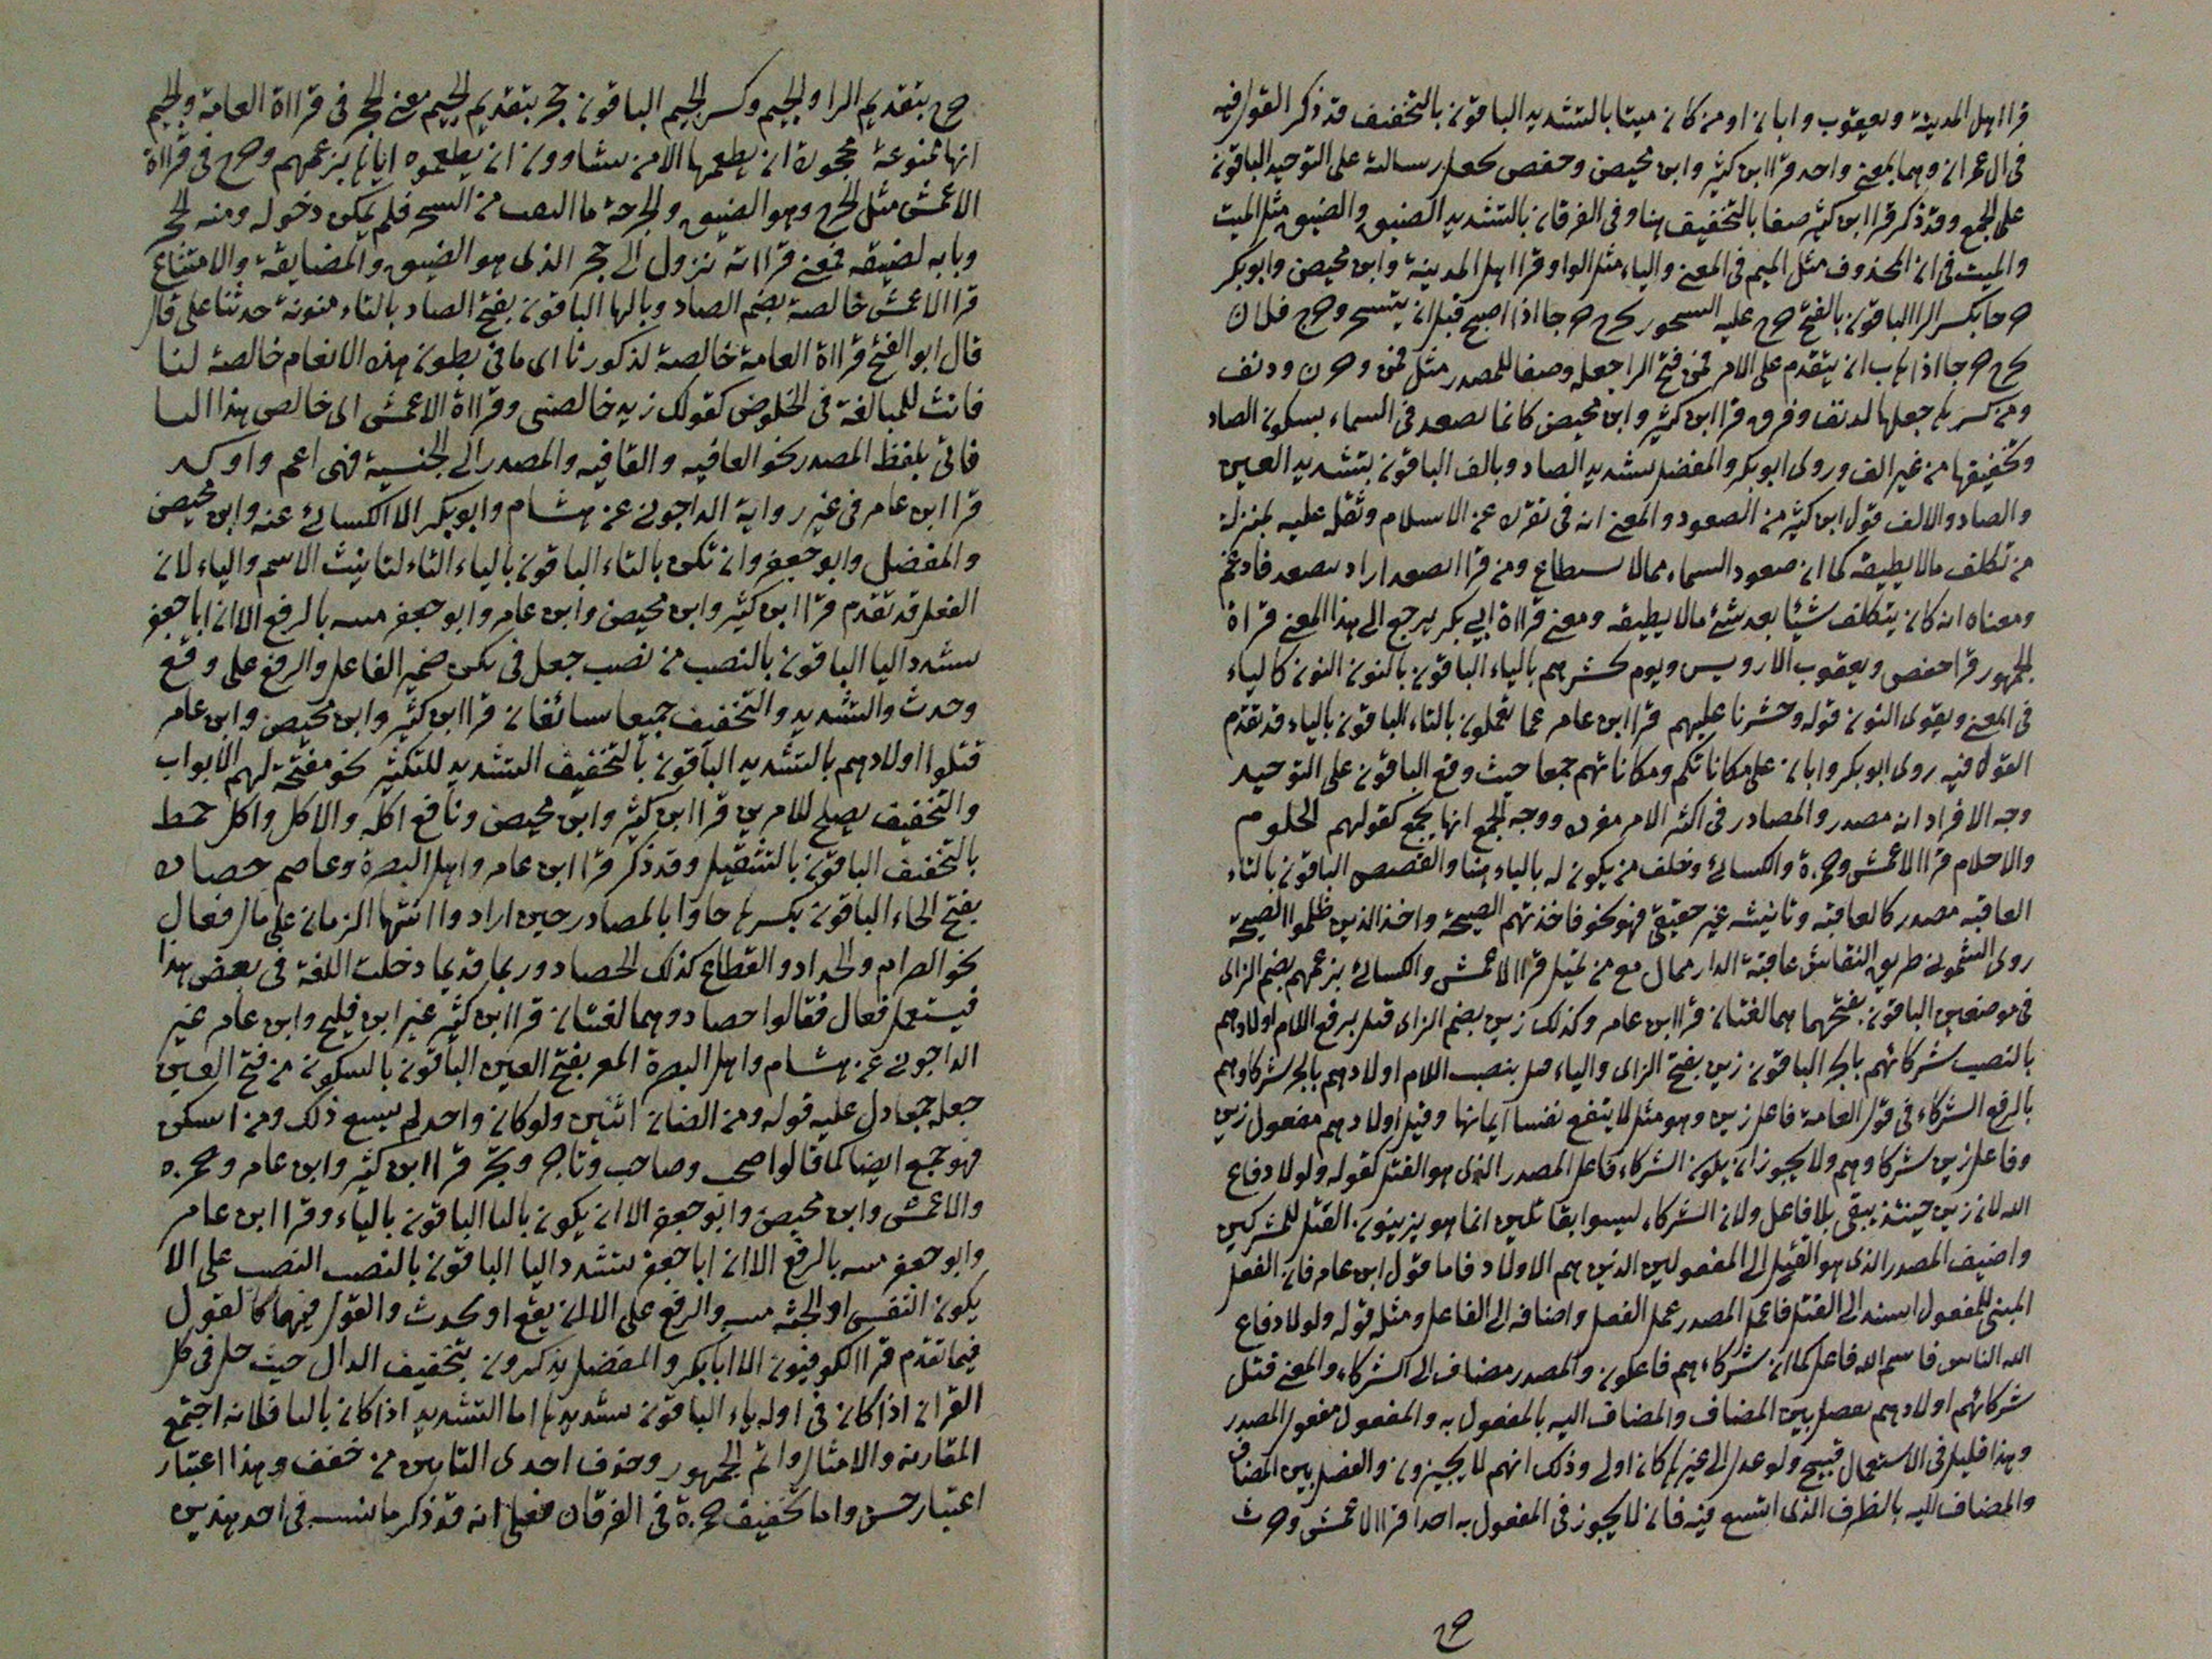 قرا اهل المدينة ويعقوب وابان اومن كان ميتا بالتشديد الباقون بالتخفيف قد ذكر القول فيه
فى ال عمران وهما بمعنى واحد قرا ابن كثير وابن محيصن وحفص يجعل رسالته على التوحيد الباقون
على الجمع وقد ذكر قرا ابن كثير ضيقا بالتخفيف هنا وفى الفرقان بالتشديد الضيق والضيق مثل الميت
والميت فى ان المحذوف مثل الميم فى المعنى والياء مثل الواو قرا اهل المدينة وابن محيصن وابوبكر
حرجا بكسر الرا الباقون بالفتح حرج عليه السحور يحرج حرجا اذا اصبح قبل ان يتسحر وحرج فلان
يحرج حرجا اذا هاب ان يتقدم على الامر فمن فتح الرا جعله وصفا للمصدر مثل قمن وحرى ودنف
ومن كسرها جعلها لدنف وفرق قرا ابن كثير وابن محيصن كانما يصعد فى السماء بسكون الصاد
وتخفيفها من غير الف وروى ابوبكر والمفضل بتشديد الصاد وبالف الباقون بتشديد العين
والصاد والالف قول ابن كثير من الصعود والمعنى انه فى نفرك عن الاسلام وثقله عليه بمنزلة
من تكلف مالا يطيقه كما ان صعود السماء مما لا يستطاع ومن قرا يصعد اراد يتصعد فادغم
ومعناه انه كان يتكلف شيئا بعد شئ مالا يطيقه ومعنى قراة ابي بكر يرجع الى هذا المعنى قراة
الجمهور قرا حفص ويعقوب الا رويس ويوم يحشرهم بالياء الباقون بالنون النون كالياء
فى المعنى ويقوى النون قوله وحشرنا عليهم قرا ابن عامر عما تعملون بالتاء الباقون بالياء قد تقدم
القول فيه روى ابوبكر وابان على مكاناتكم ومكاناتهم جمعا حيث وقع الباقون على التوحيد
وجه الافراد انه مصدر والمصادر فى اكثر الامر مفردة ووجه الجمع انها تجمع كقولهم الحلوم
والاحلام قرا الاعمش وحمزة والكسائى وخلف من يكون له بالياء هنا والقصص الباقون بالتاء
العاقبة مصدر كالعافية وتانيثه غير حقيقى فهو نحو فاخذتهم الصيحة واخذ الذين ظلموا الصيحة
روى الشمونى طريق النقاش عاقبة الدار ممال مع من يميل قرا الاعمش والكسائى بزعمهم بضم الزاى
فى موضعين الباقون بفتحهما هما لغتان قرا ابن عامر وكذلك زين بضم الزاى قتل برفع اللام اولادهم
بالنصب شركائهم بالجر الباقون زين بفتح الزاى والياء قتل بنصب اللام اولادهم بالجر شركاوهم
بالرفع الشركاء فى قول العامة فاعل زين وهو مثل لا ينفع نفسا ايمانها وقتل اولادهم مفعول زين
وفاعل زين شركاوهم ولا يجوز ان يكون الشركاء فاعل المصدر الذى هو القتل كقوله ولولا دفاع
الله لان زين حينئذ يبقى بلا فاعل ولان الشركاء ليسوا بقاتلين انما هو يزينون القتل للمشركين
واضيف المصدر الذى هو القتل الى المفعولين الذين هم الاولاد فاما قول ابن عامر فان الفعل
المبنى للمفعول اسند الى القتل فاعمل المصدر عمل الفعل واضافه الى الفاعل ومثله قوله ولولا دفاع
الله الناس فاسم الله فاعل كما ان شركاءهم فاعلون والمصدر مضاف الى الشركاء والمعنى قتل
شركائهم اولادهم بفصل بين المضاف والمضاف اليه بالمفعول به والمفعول مفعول المصدر
وهذا قليل فى الاستعمال قبيح ولو عدل الى غيرها كان اولى وذلك انهم لا يجيزون والفصل بين المضاف
والمضاف اليه بالظرف الذى اتسع فيه فان لا يجوز فى المفعول به احدا قرا الاعمش وحرث
حرج
حرج بتقديم الرا والجيم وكسر الجيم الباقون حجر بتقديم الجيم معنى الحجر فى قراءة العامة والجيم
انها ممنوعة محجورة ان يطعمها الا من يشاوون ان يطعموه اياها بزعمهم وحرج فى قراءة
الاعمش مثل الحرج وهو الضيق والحرجة ما التف من الشجر فلم يمكن دخوله ومنه الحجر
وبابه لضيقه فمعنى قراءته تزول الى حجر الذى هو الضيق والمضايقة والامتناع
قرا الاعمش خالصه بضم الصاد وبالها الباقون بفتح الصاد بالتاء منونة حدثنا على قال
قال ابو الفتح قراءة العامة خالصة لذكورنا اى ما فى بطون هذه الانعام خالصة لنا
فانث للمبالغة فى الخلوص كقولك زيد خالصتى وقراءة الاعمش الى خالص هذا البا
فاتى بلفظ المصدر نحو العافيه والعاقبه والمصدر الى الجنسية فهى اعم واوكد
قرا ابن عامر فى غير رواية الداجونى عن هشام وابوبكر الا الكسائى عنه وابن محيصن
والمفضل وابو جعفر وان تكن بالتاء الباقون بالياء التاء لتانيث الاسم والياء لان
الفعل قد تقدم قرا ابن كثير وابن محيصن وابن عامر وابو جعفر ميته بالرفع الا ان ابا جعفر
يشدد اليا الباقون بالنصب من نصب جعل فى يكن ضمير الفاعل والرفع على وقع
وحدث والتشديد والتخفيف جميعا سائغان قرا ابن كثير وابن محيصن وابن عامر
قتلوا اولادهم بالتشديد الباقون بالتخفيف التشديد للتكثير نحو مفتحة لهم الابواب
والتخفيف يصلح للامرين قرا ابن كثير وابن محيصن ونافع اكله والاكل واكل خمط
بالتخفيف الباقون بالتثقيل وقد ذكر قرا ابن عامر واهل البصرة وعاصم حصاده
بفتح الحاء الباقون بكسرها جاوا بالمصادر حين ارادوا انتهاء الزمان على مثال فعال
نحو الصرام والجداد والقطاع كذلك الحصاد وربما قديما دخلت اللغة فى بعض هذا
فيستعمل فعال فقالوا حصاد وهما لغتان قرا ابن كثير غير ابن فليح وابن عامر غير
الداجونى عن هشام واهل البصرة المعز بفتح العين الباقون بالسكون من فتح العين
جعله جمعا دل عليه قوله ومن الضان اثنين ولو كان واحد لم يسع ذلك ومن اسكن
فهو جمع ايضا كما قالوا صحب وصاحب وتاجر وتجر قرا ابن كثير وابن عامر وحمزة
والاعمش وابن محيصن وابو جعفر الا ان يكون بالتا الباقون بالياء وقرا ابن عامر
وابو جعفر ميته بالرفع الا ان ابا جعفر يشدد اليا الباقون بالنصب النصب على الا
يكون النفس او الجثه ميته والرفع على الا ان يقع او يحدث والقول فيهما كالقول
فيما تقدم قرا الكوفيون الا ابا بكر والمفضل يذكرون بتخفيف الذال حيث حل فى كل
القران اذا كان فى اوله ياء الباقون بتشديدها اما التشديد اذا كان بالتا فلانه اجتمع
المقاربة والامثال واثم الجمهور وحذف احدى التاءين من خفف وهذا اعتبار
اعتبار حسن واما تخفيف حمزة فى الفرقان فعلى انه قد ذكر ما نسبه فى احد هذين